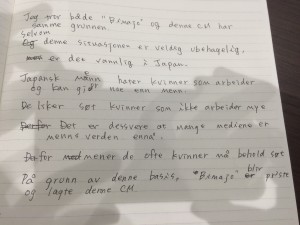 Jeg tror både "Bimajo" og denne CM har
samme grunnen.
selvom
Og denne situasjonen er veldig ubehagelig,
men er det vanlig i Japan.
Japansk mann hater kvinner som arbeider
og kan gid noe enn menn.
De liker søt kvinner som ikke arbeider mye
Det for Det er dessverre at mange mediene er
menns verden ennå.
mener de ofte kvinner må behold søt
På grunn av denne basis, "Bimajo" blir prise
og lagte denne CM.